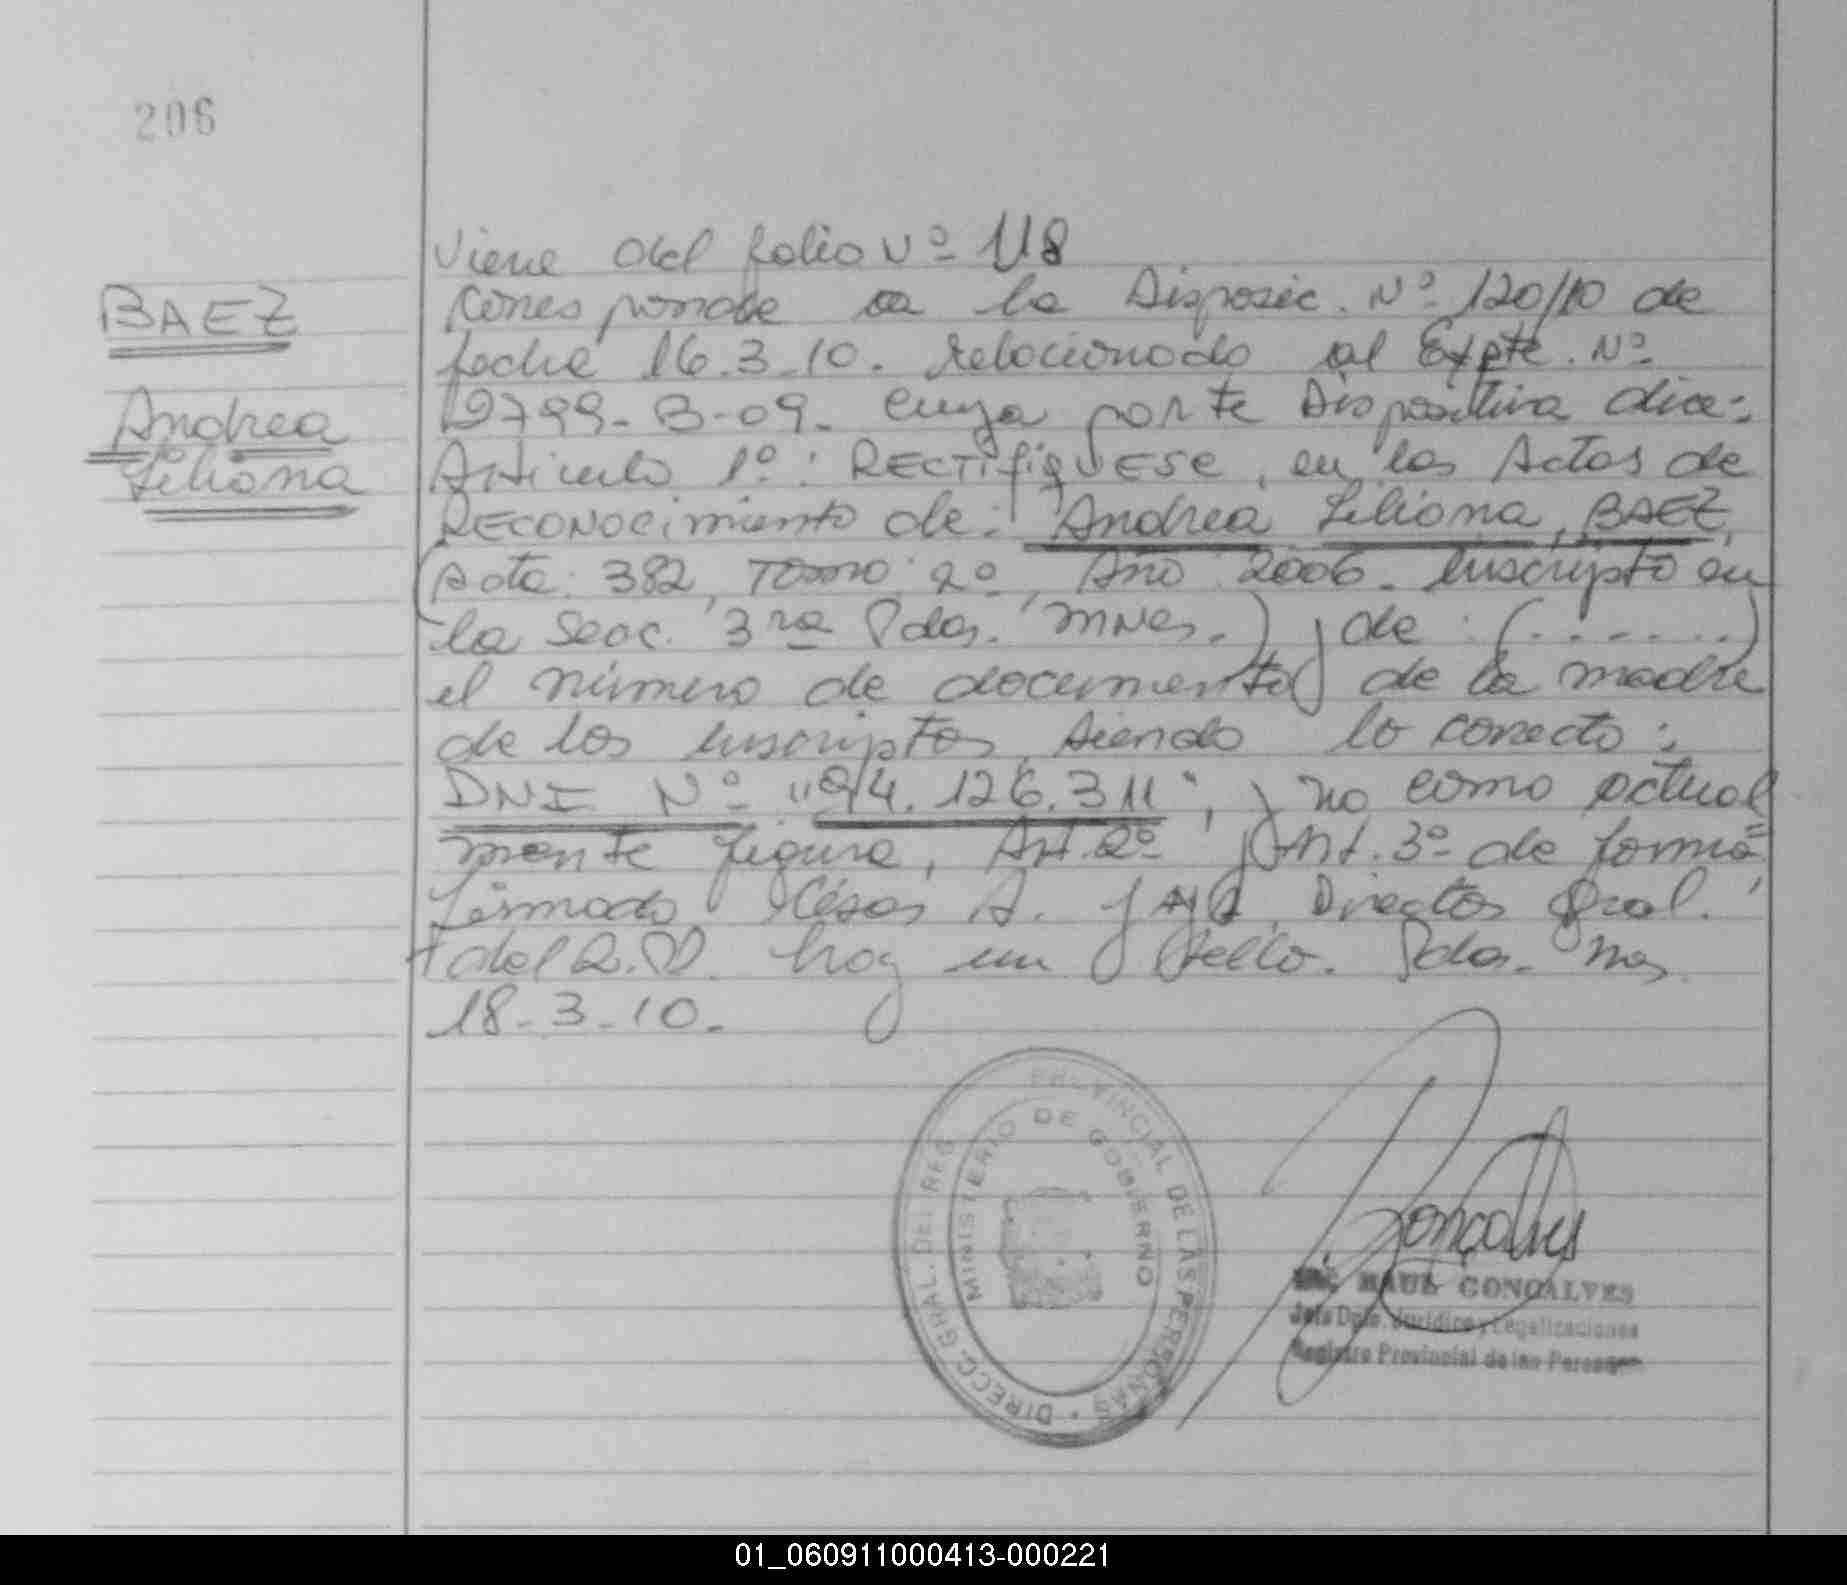 206
BAEZ
Andrea
Liliana
Viene del folio Nº 118
corresponde a la Disposic. Nº 120/10 de
fecha 16.3.10. relacionado al Expte. Nº
9799-B-09. cuya parte Dispositiva dice:
Articulo 1º: RECTIFIQUESE, en las Actas de
RECONOCIMIENTO de: Andrea Liliana, BAEZ,
(Acta: 382, Tomo: 2º, Año 2006. Inscripto en
la Secc. 3ra Pdas. Mnes.) y de: (.......)
el número de documento de la madre
de los inscriptos, siendo lo correcto:
DNI Nº "94.126.311", y no como actual
mente figura, Art. 2º y Art. 3º de forma
firmado César A. Director Gral.
del R.P. hay un sello. Pdas. Mnes
18-3-10.
DIRECC. GRAL. DEL REG. PROVINCIAL DE LAS PERSONAS
MINISTERIO DE GOBIERNO
Gonçalves
RAUL GONCALVES
Jefe Dpto. Jurídico y Legalizaciones
Registro Provincial de las Personas
01_060911000413-000221